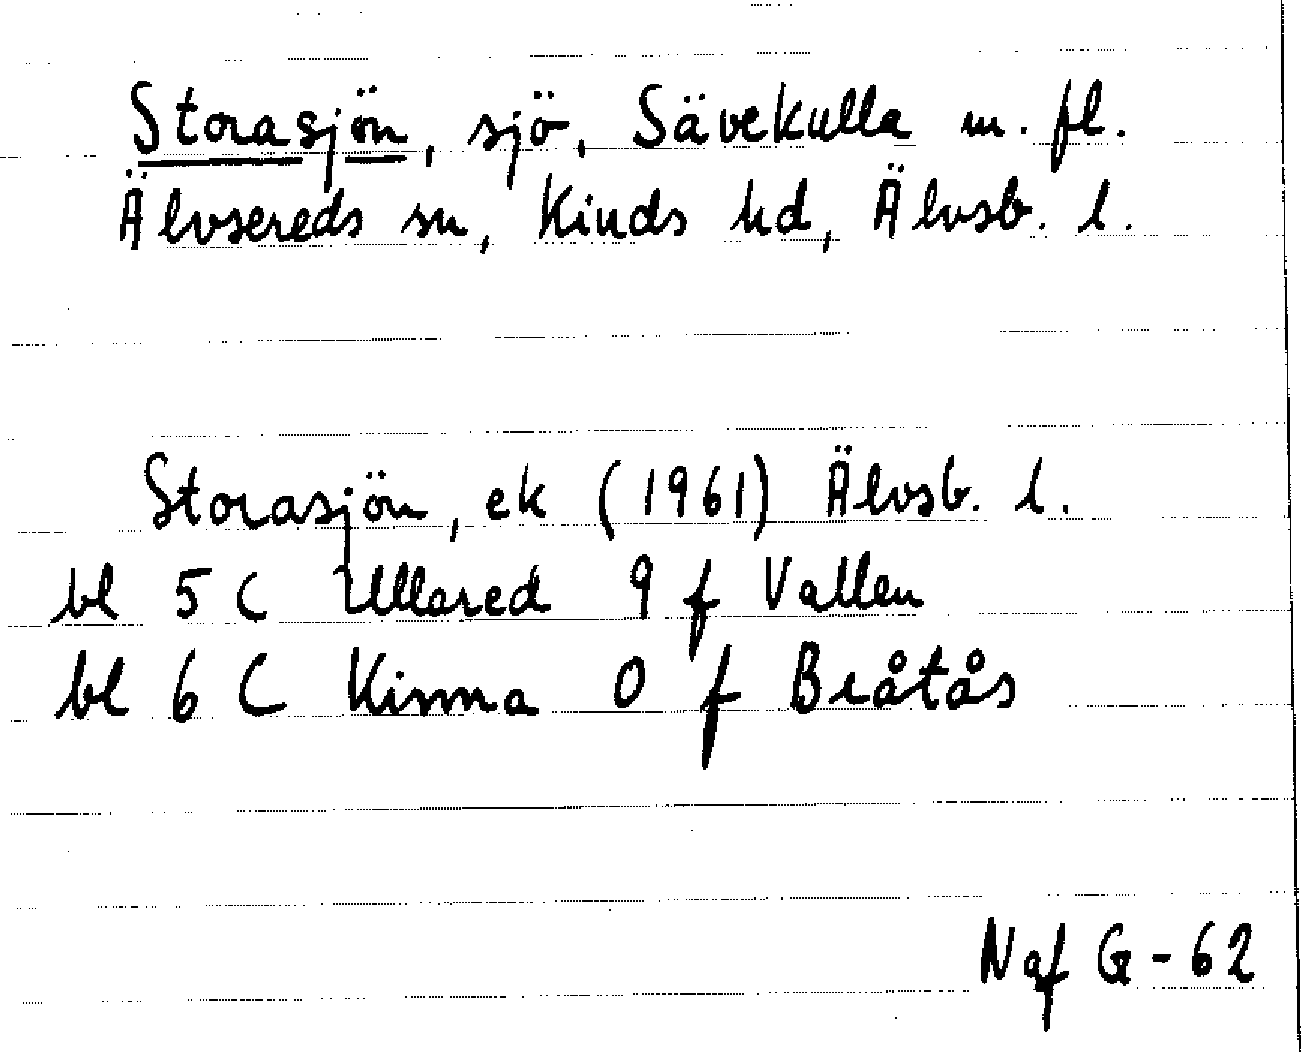 Storasjön, sjö, Sävekulla m. fl.
Älvsereds sn, Kinds hd, Älvsb. l.
Storasjön, ek (1961) Älvsb. l.
bl 5 C Ullared 9 f Vallen
bl 6 C Kinna 0 f Bråtås
Naf G-62